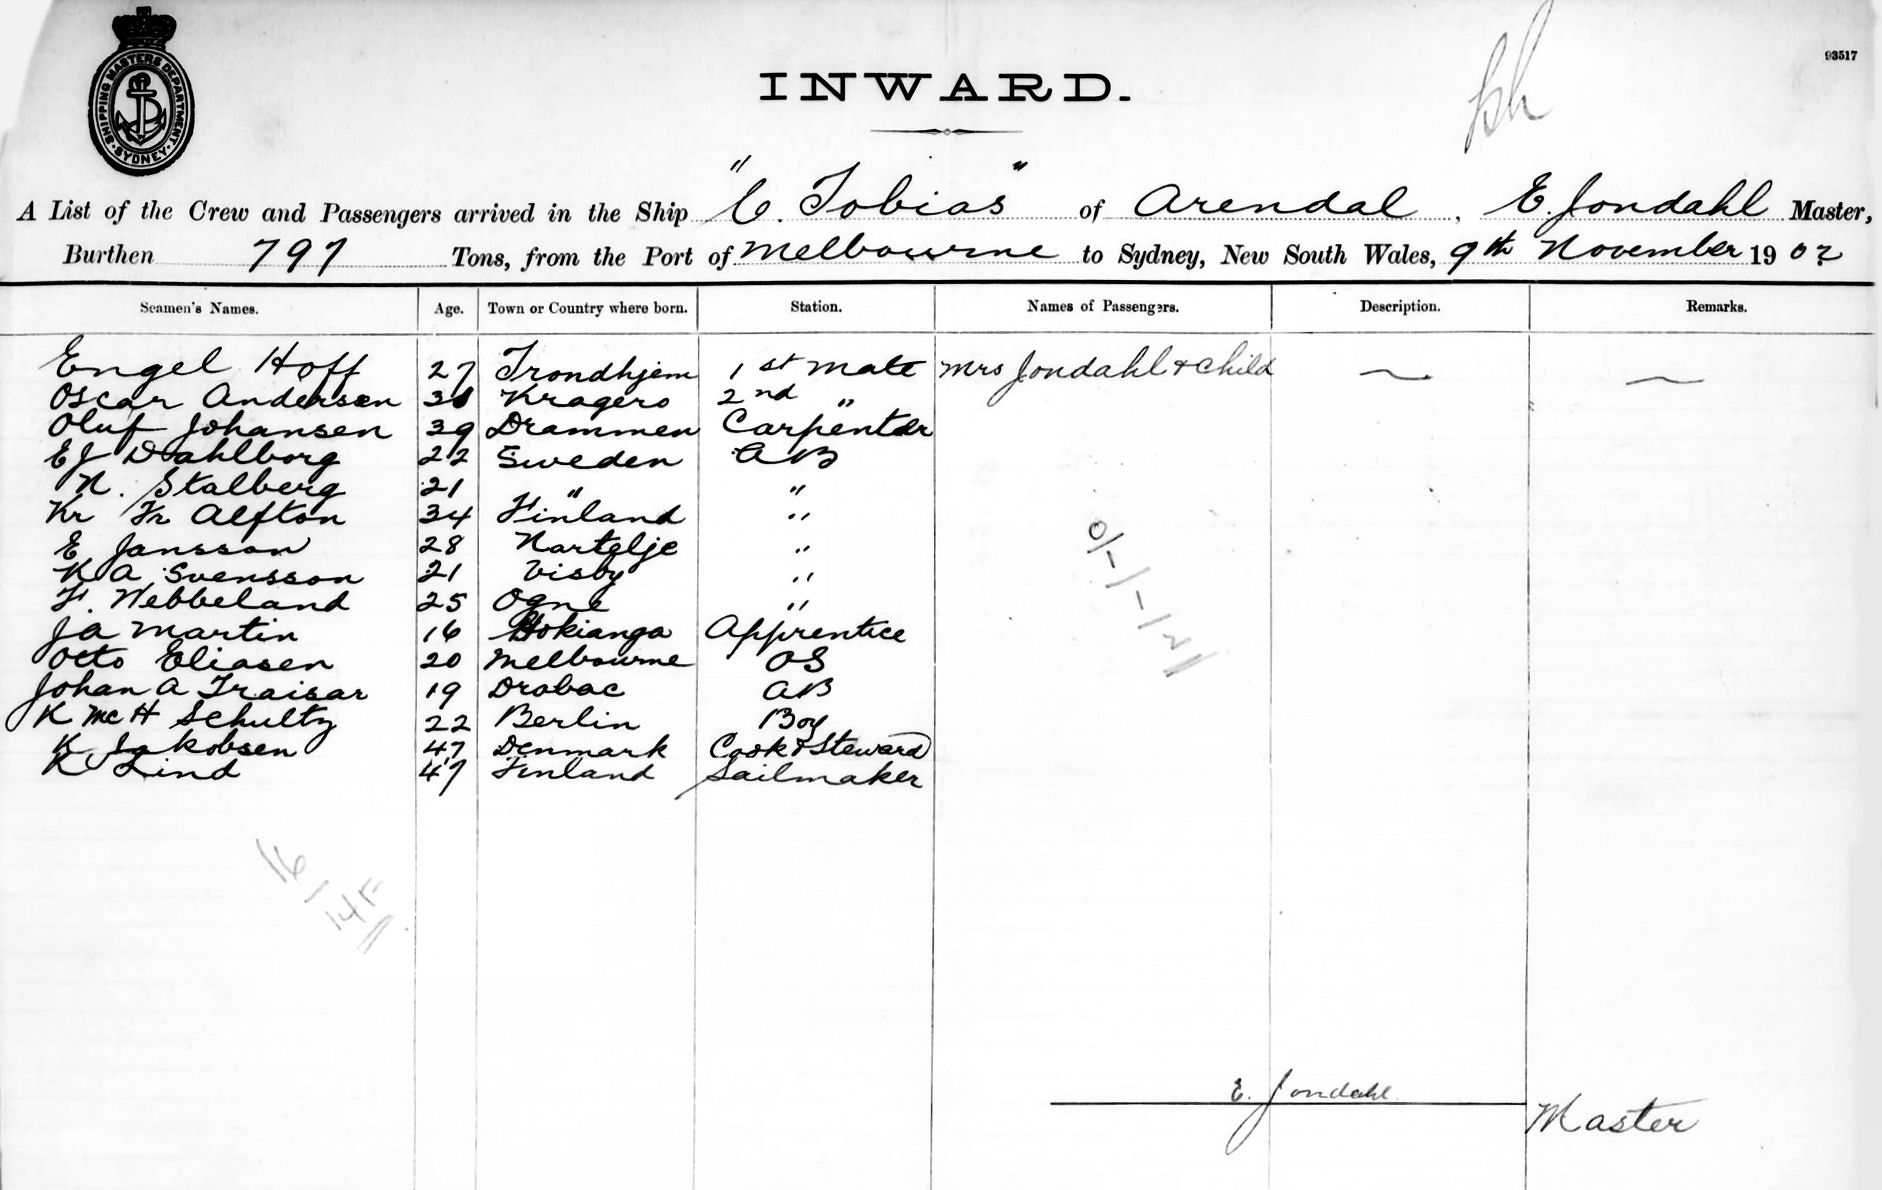 SHIPPING MASTERS DEPARTMENT
SYDNEY
93517
INWARD.
A List of the Crew and Passengers arrived in the Ship "C. Tobias" of Arendal, E. Jondahl Master,
Burthen 797 Tons, from the Port of Melbourne to Sydney, New South Wales, 9th November 1902
Seamen's Names. Age. Town or Country where born. Station. Names of Passengers. Description. Remarks.
Engel Hoff 27 Trondhjem 1st Mate Mrs Jondahl & Child — —
Oscar Andersen Kragero 2nd "
Oluf Johansen 39 Drammen Carpenter
EJ Dahlborg 22 Sweden AB
N. Stalberg 21 " "
Kr Fr Alfton 34 Finland "
E Jansson 28 Nortelje "
K A Svensson 21 Visby "
F. Webbeland 25 Ogne "
JA Martin 16 Hokianga Apprentice
Octo Eliasen 20 Melbourne OS
Johan A Traisar 19 Drobac AB
K McH Schultz 22 Berlin Boy
K Jakobsen 47 Denmark Cook & Steward
K Lind 47 Finland Sailmaker
0/-1-121
16
14F
E. Jondahl
Master